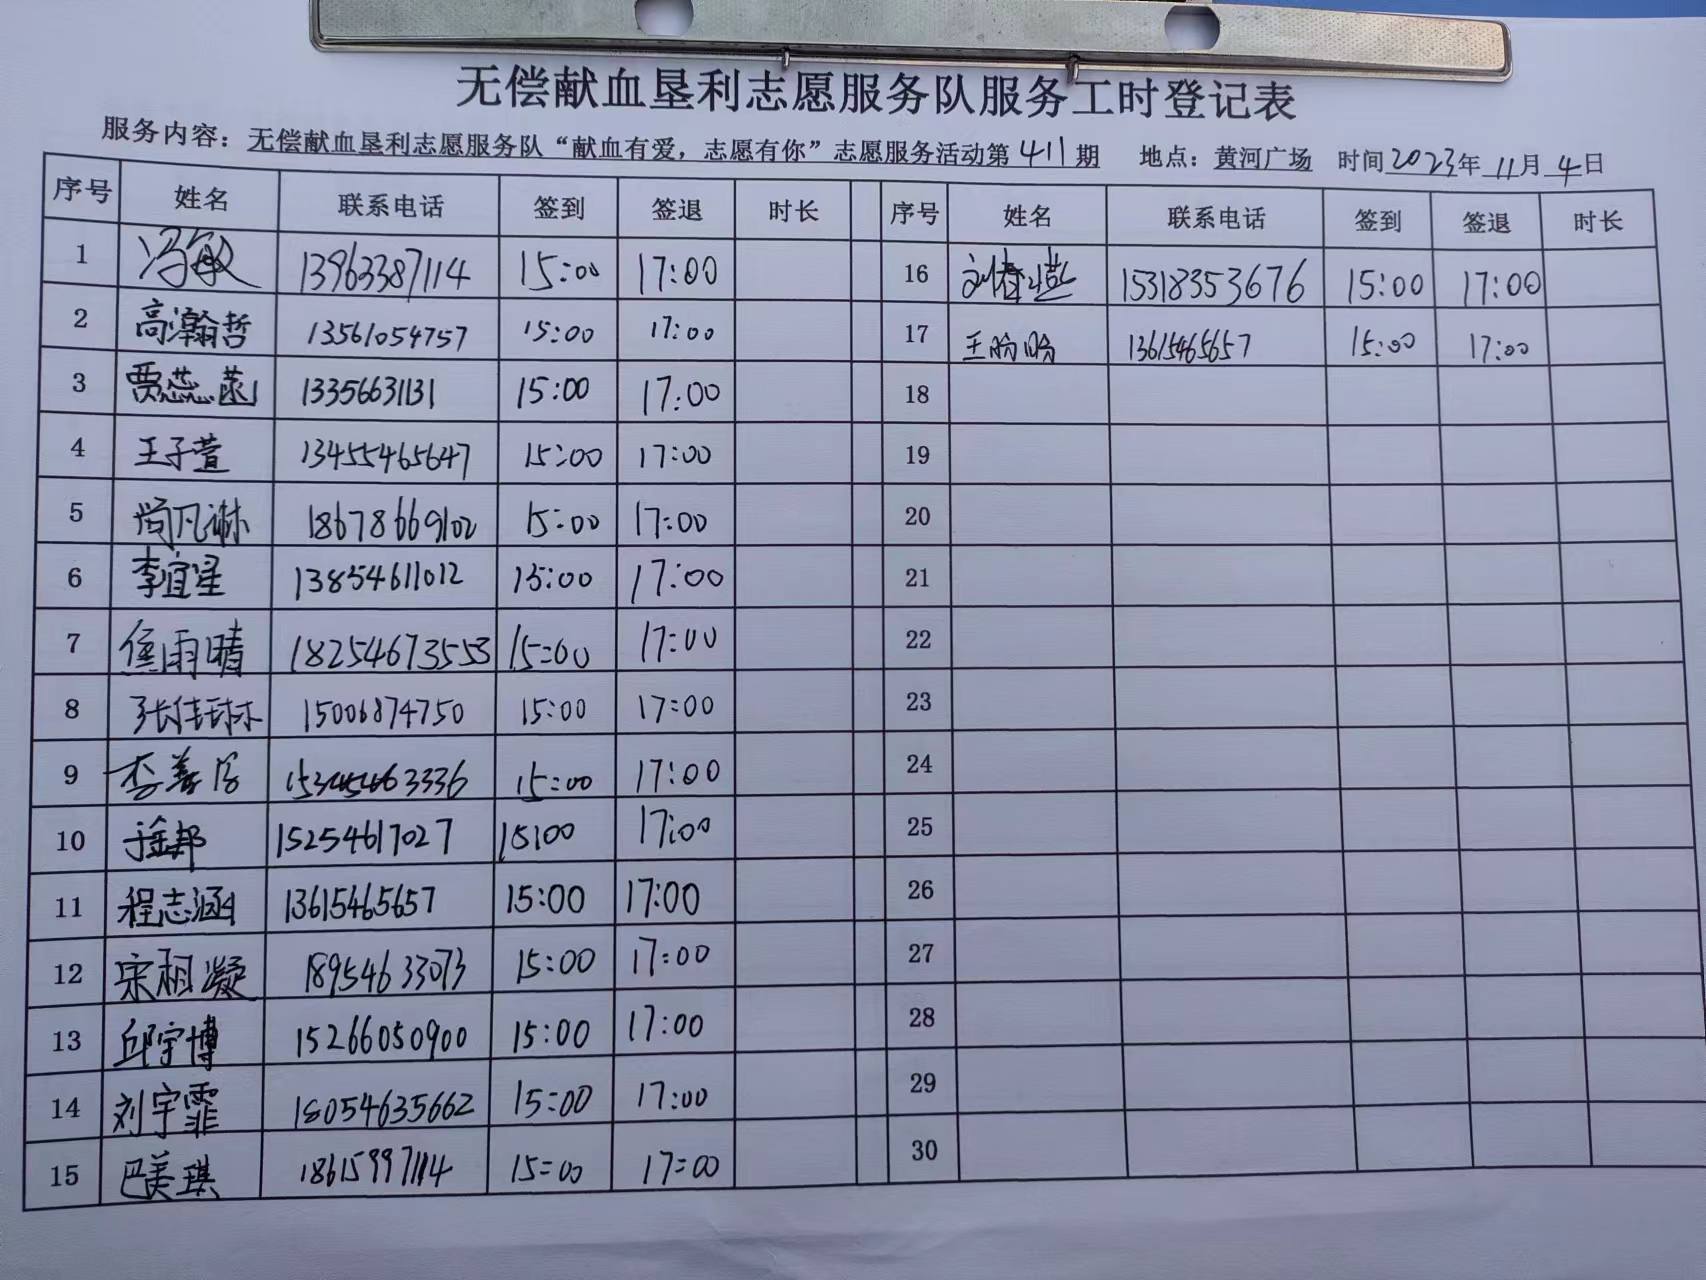 无偿献血垦利志愿服务队服务工时登记表
服务内容：无偿献血垦利志愿服务队“献血有爱，志愿有你”志愿服务活动第411期 地点：黄河广场 时间2023年11月4日
序号 姓名 联系电话 签到 签退 时长 序号 姓名 联系电话 签到 签退 时长
1 冯敏 13963387114 15:00 17:00 16 刘 15318353676 15:00 17:00
2 高瀚哲 13561054757 15:00 17:00 17 王盼盼 13615465657 15:00 17:00
3 贾蕊菡 13356631131 15:00 17:00 18
4 王子萱 13455465647 15:00 17:00 19
5 尚凡琳 18678669102 15:00 17:00 20
6 李宜星 13854611012 15:00 17:00 21
7 焦雨晴 18254673553 15:00 17:00 22
8 张佳琳 15006874750 15:00 17:00 23
9 李 15:00 17:00 24
10 15254617027 15:00 17:00 25
11 程志涵 13615465657 15:00 17:00 26
12 宋相凝 18954633073 15:00 17:00 27
13 邱宇博 15266050900 15:00 17:00 28
14 刘宇霏 18054635662 15:00 17:00 29
15 巴美琪 18615997114 15:00 17:00 30